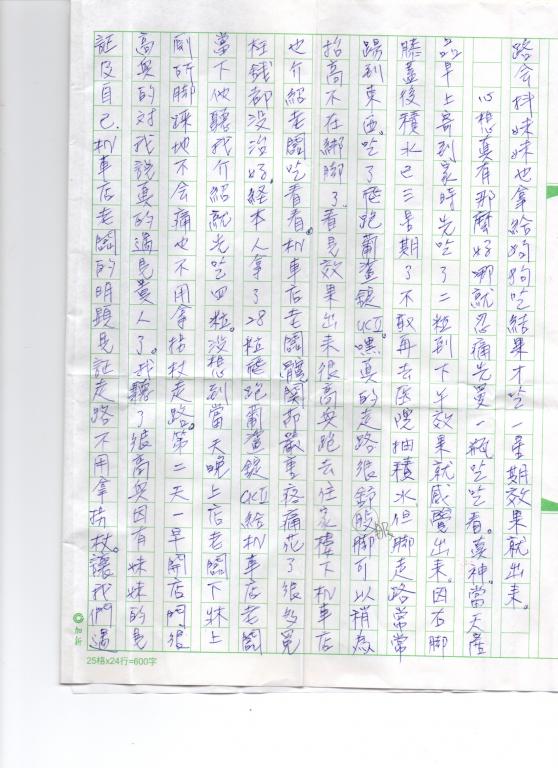 路会抖妹妹也拿給狗狗吃結果才吃一星期效果就出來。
心想真有那麼好哪就忍痛先買一瓶吃吃看。真神。當天產
品早上寄到家時先吃了二粒到下午效果就感覺出來。因右腳
膝蓋後積水已三星期了不敢再去医院抽積水但腳走路常常
踢到東西。吃了 跑葡 錠UCII。嘿真的走路很 腳可以稍為
抬高不在綁腳了。看見效果出來很高興跑去住家樓下机車店
也介紹老闆吃看看。机車店老闆髖関節嚴重疼痛花了很多冤
枉錢都沒治好。経本人拿了28粒 跑葡 錠UCII給机車店老闆
當下他聽我介紹就先吃四粒。沒想到當天晚上店老闆下床上
廁所腳踩地不会痛也不用拿拐杖走路。第二天一早開店門很
高興的对我說真的遇見貴人了。我聽了很高興因有妹妹的見
証及自己.机車店老闆的明顯見証走路不用拿拐杖。讓我們遇
加新
25格x24行=600字